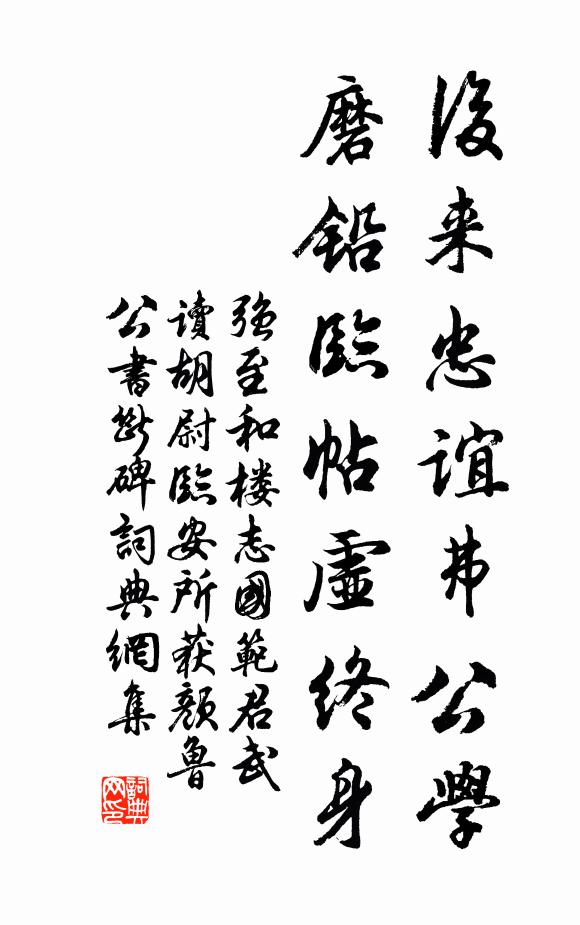 後来忠誼弗公學
磨鉛臨帖虛終身
强至和楼志國範君武
讀胡尉臨安所获顏魯
公書断碑詞典網集
詞典网印